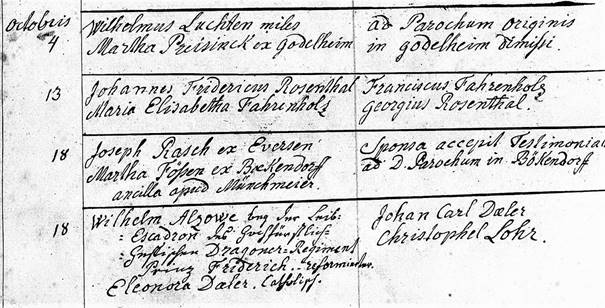 Octobris
4
Wilhelmus Luchten miles
Martha Preisinck ex godelheim
ad Parochum originis
in godelheim dimissi.
13
Johannes Fridericus Rosenthal
Maria Elisabetha Fahrenholz
Franciscus Fahrenholz
Georgius Rosenthal.
18
Joseph Rasch ex Eversen
Martha Fössen ex Bökendorff
ancilla apud Münchmeier.
Sponsa accepit Testimonia
ad D. Parochum in Bökendorff
18
Wilhelm bey der Leib-
Escadron des
Dragoner-Regiment
Prinz Friderich reformierter
Eleonora Dæler. Catholisch.
Johan Carl Dæler
Christophel Lohr.